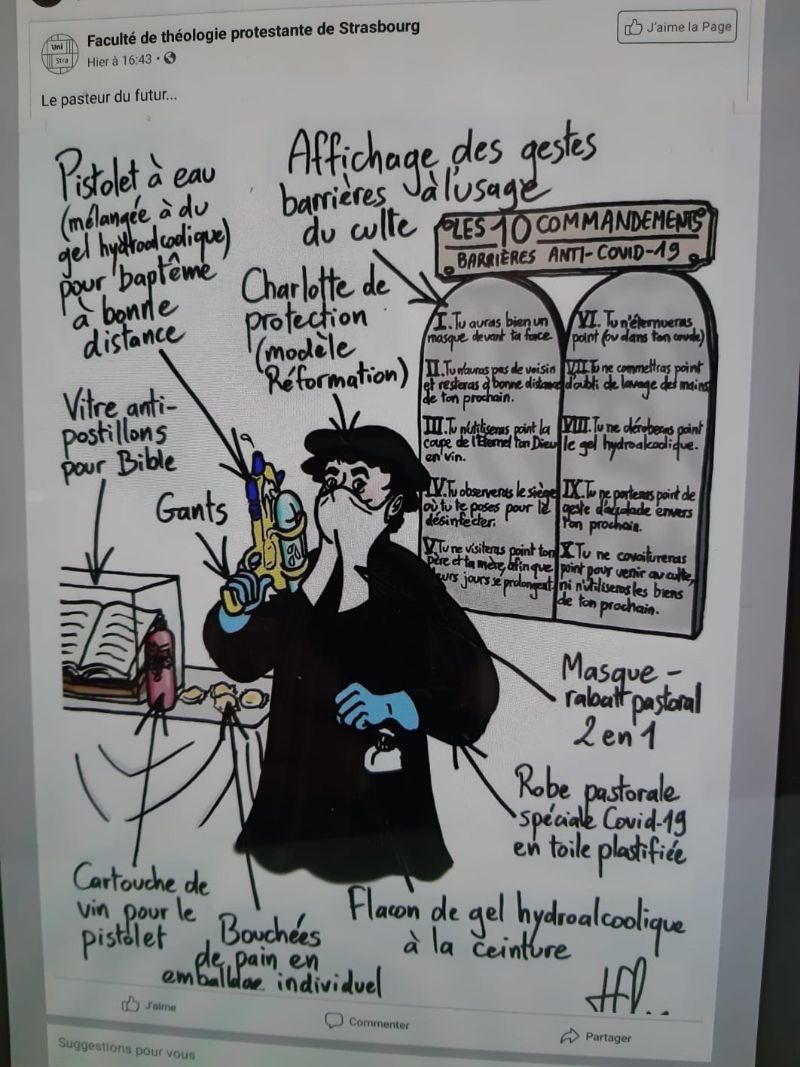 Faculté de théologie protestante de Strasbourg
Hier à 16:43
J'aime la Page
Uni
Stra
Le pasteur du futur...
Pistolet à eau
(mélangée à du
gel hydroalcoolique)
pour baptême
à bonne
distance
Affichage des gestes
barrières à l'usage
du culte
LES 10 COMMANDEMENTS
BARRIÈRES ANTI-COVID-19
Charlotte de
protection
(modèle
Réformation)
I. Tu auras bien un
masque devant ta face.
II. Tu n'auras pas de voisin
et resteras à bonne distance
de ton prochain.
III. Tu n'utiliseras point la
coupe de l'Eternel ton Dieu
en vin.
IV. Tu observeras le siège
où tu te poses pour le
désinfecter.
V. Tu ne visiteras point ton
père et ta mère, afin que
leurs jours se prolongent
VI. Tu n'éternueras
point (ou dans ton coude)
VII. Tu ne commettras point
d'oubli de lavage des mains
VIII. Tu ne déroberas point
le gel hydroalcoolique.
IX. Tu ne porteras point de
geste d'accolade envers
ton prochain.
X. Tu ne covoitureras
point pour venir au culte,
ni n'utiliseras les biens
de ton prochain.
Vitre anti-
postillons
pour Bible
Gants
Masque-
rabatt pastoral
2 en 1
Robe pastorale
spéciale Covid-19
en toile plastifiée
Cartouche de
vin pour le
pistolet
Bouchées
de pain en
emballage individuel
Flacon de gel hydroalcoolique
à la ceinture
J'aime
Commenter
Partager
Suggestions pour vous